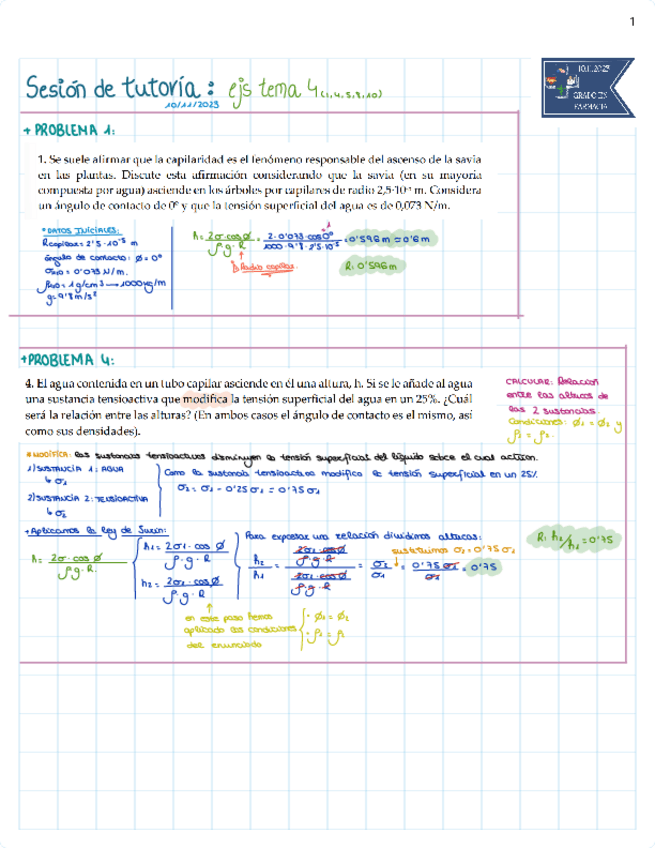 1
Sesión de tutoría: ejs tema 4 (1,4,5,8,10)
10/11/2023
10.11.2023
GRADO EN
FARMACIA
+ PROBLEMA 1:
1. Se suele afirmar que la capilaridad es el fenómeno responsable del ascenso de la savia
en las plantas. Discute esta afirmación considerando que la savia (en su mayoría
compuesta por agua) asciende en los árboles por capilares de radio 2,5·10⁻⁵ m. Considera
un ángulo de contacto de 0º y que la tensión superficial del agua es de 0,073 N/m.
* DATOS INICIALES:
R capilar = 2'5·10⁻⁵ m
ángulo de contacto: φ = 0º
σH₂O = 0'073 N/m.
ρH₂O = 1g/cm³ → 1000 kg/m
g = 9'8 m/s²
h = 2σ·cos φ / ρ·g·R = 2·0'073·cos 0º / 1000·9'8·2'5·10⁻⁵ = 0'596 m ≈ 0'6 m
1
↳ Radio capilar.
R: 0'596 m
+ PROBLEMA 4:
4. El agua contenida en un tubo capilar asciende en él una altura, h. Si se le añade al agua
una sustancia tensioactiva que modifica la tensión superficial del agua en un 25%. ¿Cuál
será la relación entre las alturas? (En ambos casos el ángulo de contacto es el mismo, así
como sus densidades).
CALCULAR: Relación
entre las alturas de
las 2 sustancias
Condiciones: φ₁ = φ₂ y
ρ₁ = ρ₂.
* MODIFICA: las sustancias tensioactivas disminuyen la tensión superficial del líquido sobre el cual actúan.
1) SUSTANCIA 1: AGUA
↳ σ₁
2) SUSTANCIA 2: TENSIOACTIVA
↳ σ₂
Como la sustancia tensioactiva modifica la tensión superficial en un 25%
σ₂ = σ₁ - 0'25 σ₁ = 0'75 σ₁
+ Aplicamos la ley de Jurin:
h = 2σ·cos φ / ρ·g·R.
h₁ = 2σ₁·cos φ / ρ·g·R
h₂ = 2σ₂·cos φ / ρ·g·R
en este paso hemos
aplicado las condiciones
del enunciado
· φ₁ = φ₂
· ρ₁ = ρ₂
Para expresar una relación dividimos alturas:
sustituimos σ₂ = 0'75 σ₁
h₂ / h₁ = (2σ₂·cos φ / ρ·g·R) / (2σ₁·cos φ / ρ·g·R) = σ₂ / σ₁ = 0'75 σ₁ / σ₁ = 0'75
R: h₂/h₁ = 0'75